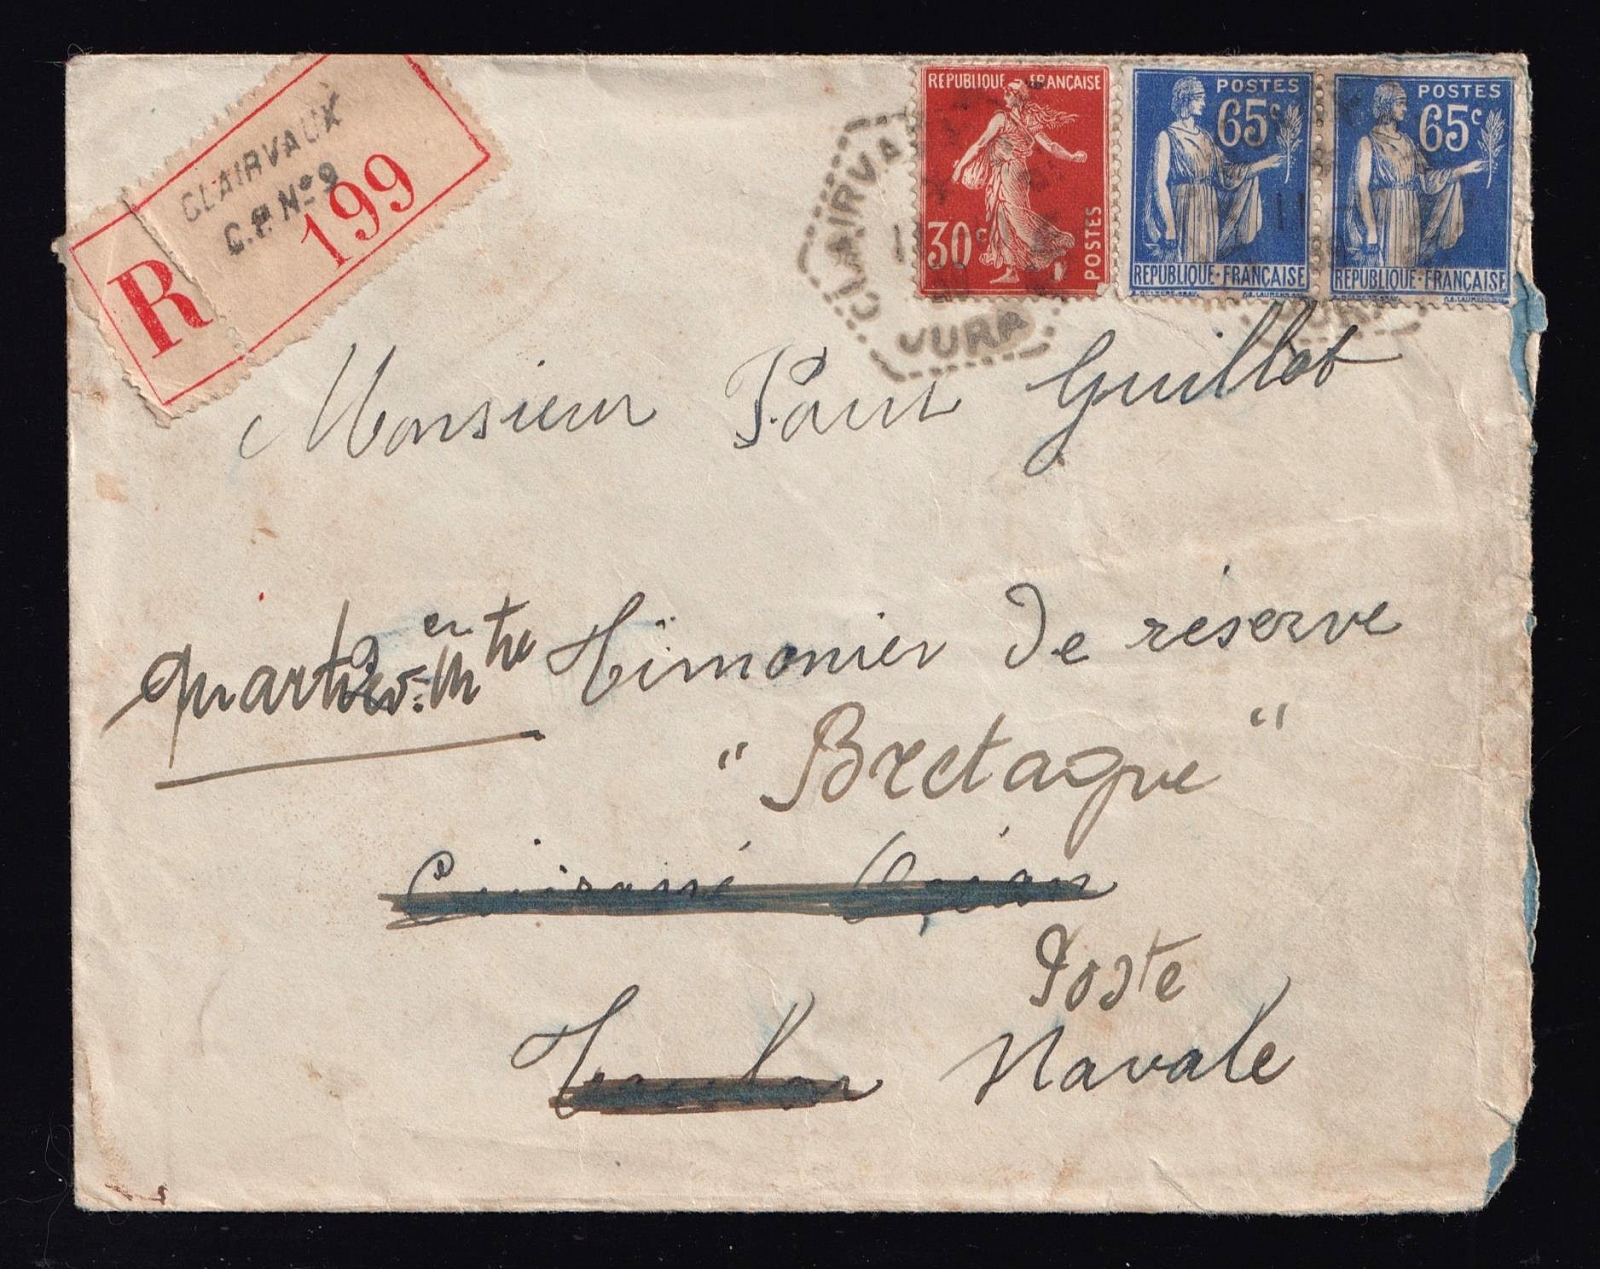 CLAIRVAUX
C.P. Nº 9
R 199
REPUBLIQUE FRANÇAISE
30c
POSTES
POSTES
65c
REPUBLIQUE·FRANÇAISE
POSTES
65c
REPUBLIQUE·FRANÇAISE
CLAIRVA
JURA
Monsieur Paul Guillot
Quartier-Mtre Timonier de réserve
"Bretagne"
Cuirassé Océan
Poste
Toulon Navale